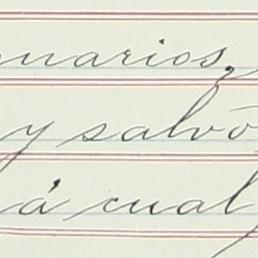 nuarios,
y salvó
á cual